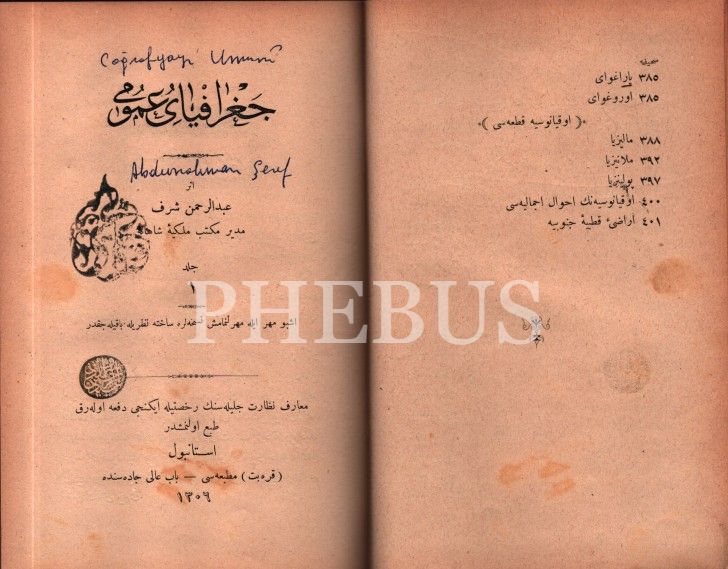 Coğrafyayi Umumî
جغرافیای عمومی
Abdurrahman Şeref
اثر
عبدالرحمن شرف
مدیر مكتب ملكیهٔ شاهانه
جلد
١
اشبو مهر ایله مهرلنمامش نسخه‌لره ساخته نظریله باقیله‌جقدر
معارف نظارت جلیله‌سنك رخصتیله ایكنجی دفعه اوله‌رق
طبع اولنمشدر
استانبول
(قره‌بت) مطبعه‌سی — باب عالی جاده‌سنده
١٣٠٦
صحیفه
٣٨٥ پاراغوای
٣٨٥ اوروغوای
(اوقیانوسیه قطعه‌سی)
٣٨٨ مالیزیا
٣٩٢ ملانیزیا
٣٩٧ پولینزیا
٤٠٠ اوقیانوسیه‌نك احوال اجمالیه‌سی
٤٠١ اراضیٔ قطبیهٔ جنوبیه
PHEBUS